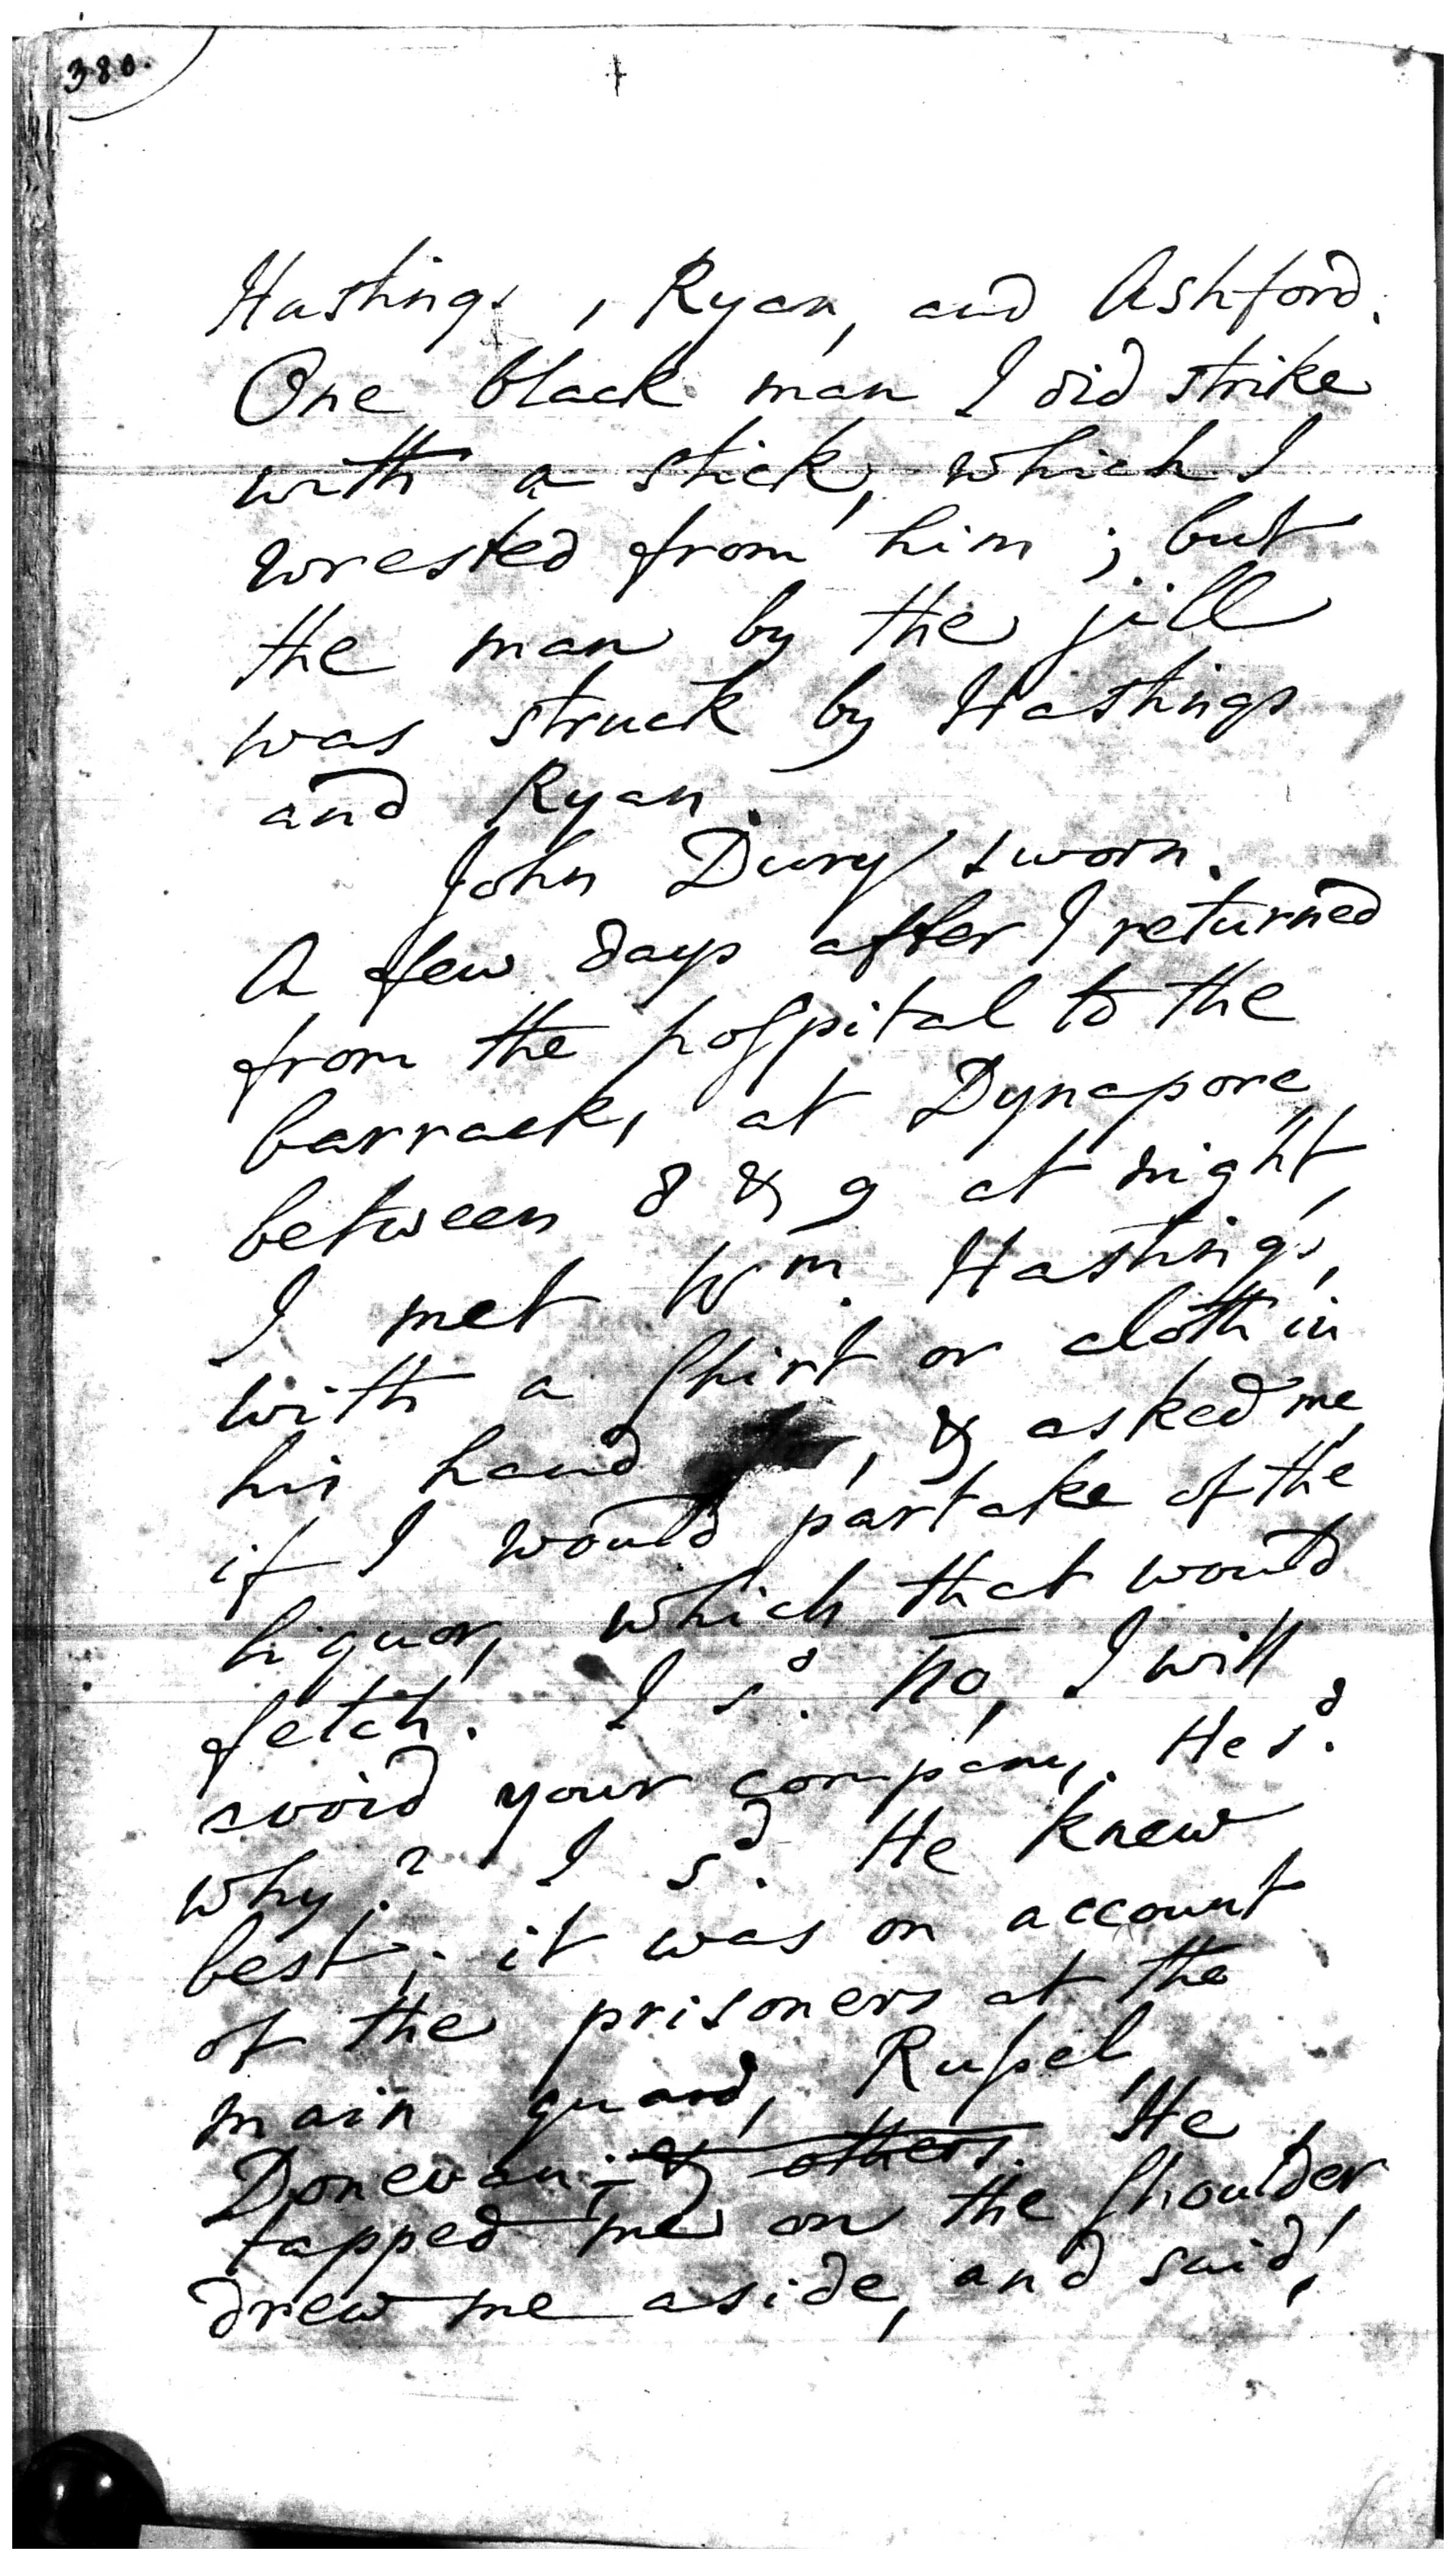 380.
Hastings, Ryan, and Ashford.
One black man I did strike
with a stick, which I
wrested from him; but
the man by the jill
was struck by Hastings
and Ryan.
John Dury sworn.
A few days after I returned
from the hospital to the
barracks at Dynapore,
between 8 & 9 at night,
I met Wm. Hastings,
with a shirt or cloth in
his hand, & asked me,
if I would partake of the
liquor, which that would
fetch. I sd. no, I will
avoid your company. He sd.
why? I sd. He knew
best; it was on account
of the prisoners at the
main guard, Russel,
Donevan; & others. He
tapped me on the shoulder,
drew me aside, and said,